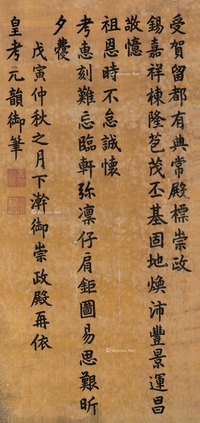 受賀留都有典常殿標崇政
錫嘉祥棟隆苞茂丕基固地煥沛豐景運昌
敬憶
祖恩時不怠誠懷
考惠刻難忘臨軒弥凜仔肩鉅圖易思艱昕
夕𡫏
戊寅仲秋之月下澣御崇政殿再依
皇考元韻御筆